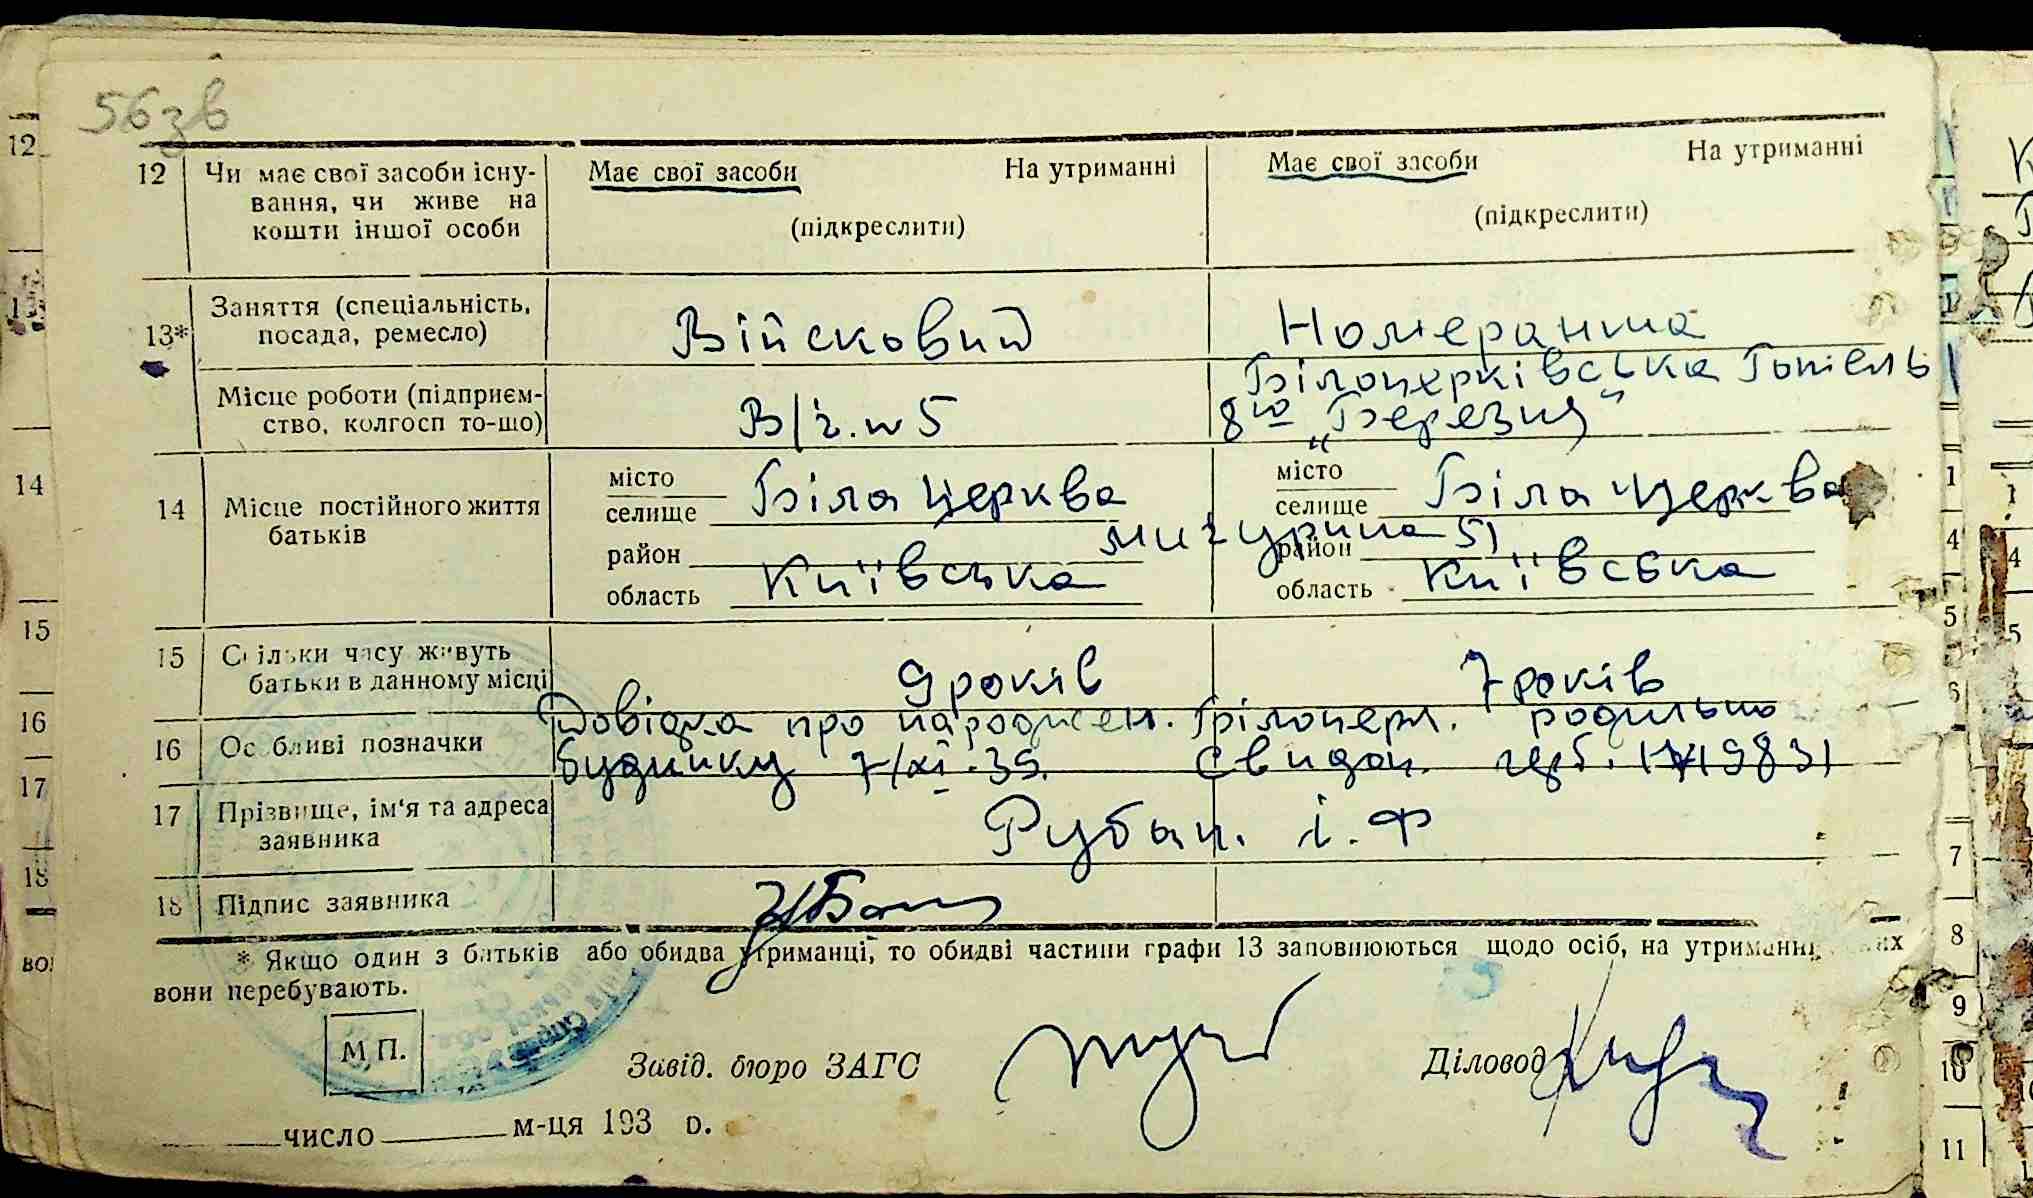 56зв
12 Чи має свої засоби існу- Має свої засоби На утриманні Має свої засоби На утриманні
вання, чи живе на
кошти іншої особи (підкреслити) (підкреслити)
13* Заняття (спеціальність, Військовий Номеранша
посада, ремесло)
Місце роботи (підприєм- В/ч. № 5 Білоцерківська Готель
ство, колгосп то-що) 8го „Березня“
14 Місце постійного життя місто Біла Церква місто Біла Церква
батьків селище селище
район Мичурина 51 район
область Київська область Київська
15 Скільки часу живуть 9 років 7 років
батьки в данному місці
16 Особливі позначки Довідка про народжен. Білоцерк. родильно
будинку 7/XI.39.
17 Прізвище, ім'я та адреса Рубан. І. Ф
заявника
18 Підпис заявника
* Якщо один з батьків або обидва утриманці, то обидві частини графи 13 заповнюються щодо осіб, на утриманні яких
вони перебувають.
М П.
Завід. бюро ЗАГС Діловод
число м-ця 193 р.
12
14
15
16
17
18
1
4
5
6
7
8
9
10
11